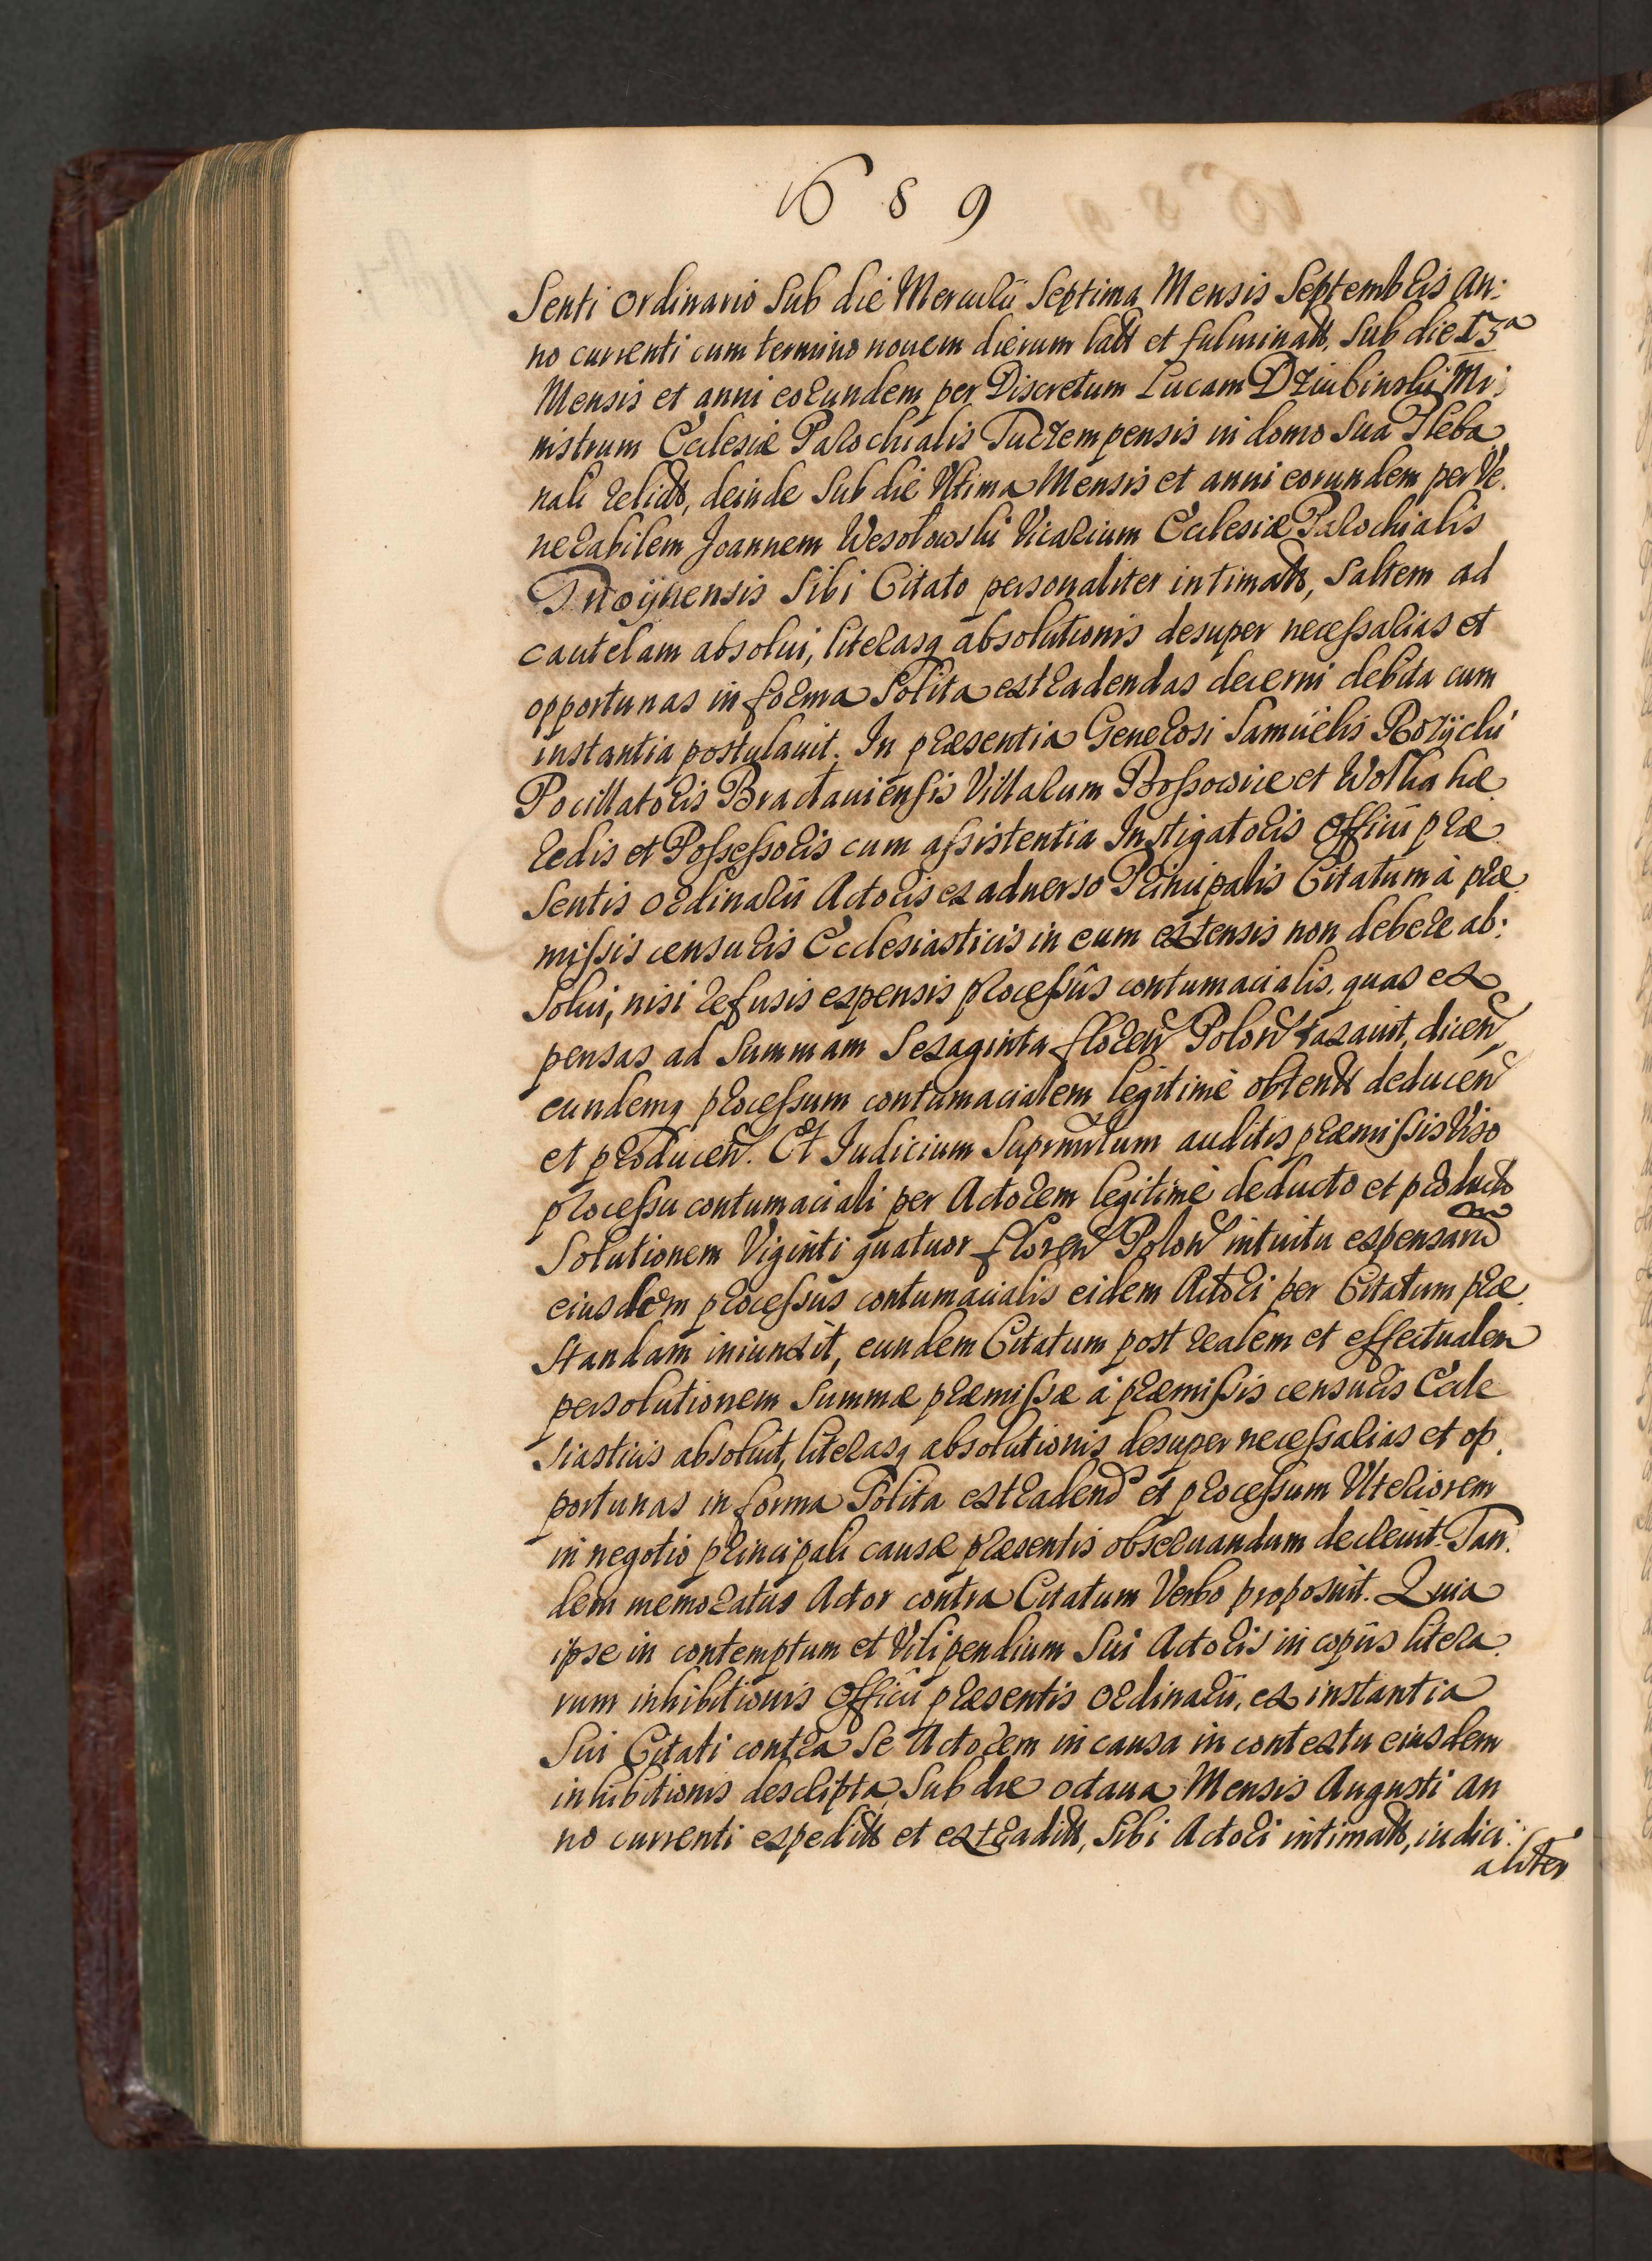 1689
senti ordinario sub die Mercurii septima Mensis Septembris An:
no currenti cum termino nouem dierum latt et fulminatt, sub die 13ᵃ
Mensis et anni eorundem per Discretum Lucam Dziubinski Mi:
nistrum Ecclesiæ Parochialis Tuczempensis in domo sua Pleba
nali relictt, deinde sub die Vltima Mensis et anni eorundem per Ve
nerabilem Joannem Wesolowski Vicarium Ecclesiæ Parochialis
sibi Citato personaliter intimatt, saltem ad
cautelam absolui, literasq absolutionis desuper necessarias et
opportunas in forma solita extradendas decerni debita cum
instantia postulauit. In præsentia Generosi Samuelis Rozycki
Pocillatoris Braclauiensis Villarum Bossowice et Wolka hæ
redis et Possessoris cum assistentia Instigatoris Officii præ
sentis ordinarii Actoris ex aduerso Principalis Citatum à præ
missis censuris Ecclesiasticis in eum extensis non debere ab:
solui, nisi refusis expensis processûs contumacialis, quas ex
pensas ad summam sexaginta floren Polon taxauit, dicen
eundemq processum contumacialem legitimè obtentt deducen
et producen. Et Judicium Suprmtum auditis præmissis Viso
processu contumaciali per Actorem legitimè deducto et producto
Solutionem Viginti quatuor floren Polon intuitu expensarum
eiusdem processus contumacialis eidem Actori per Citatum præ
standam iniunxit, eundem Citatum post realem et effectualem
persolutionem summæ præmissæ à præmissis censuris Eccle
siasticis absoluit, literasq absolutionis desuper necessarias et op
portunas in forma solita extradend et processum Vlteriorem
in negotio principali causæ præsentis obseruandum decreuit. Tan
dem memoratus Actor contra Citatum Verbo proposuit. Quia
ipse in contemptum et Vilipendium sui Actoris in copiis litera
rum inhibitionis Officii præsentis ordinarii, ex instantia
sui Citati contra se Actorem in causa in contextu eiusdem
inhibitionis descripta, sub die octaua Mensis Augusti an
no currenti expeditt et extraditt, sibi Actori intimatt, iudici:
aliter